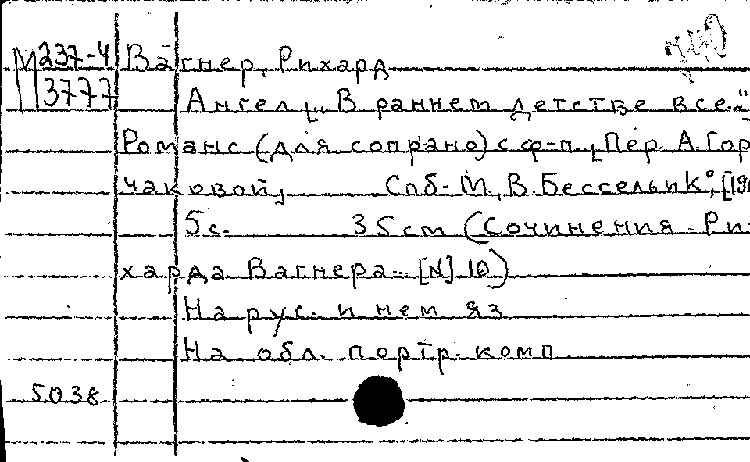 М 237-4 Вагнер, Рихард
3777 Ангел: „В раннем детстве все..."
Романс (для сопрано) с ф-п., Пер. А. Гор
чаковой, Спб-М, В. Бессель и К°, [19
5с. 35 cm (Сочинения Ри-
харда Вагнера... [N] 10)
На рус. и нем яз
На обл. портр. комп
5038